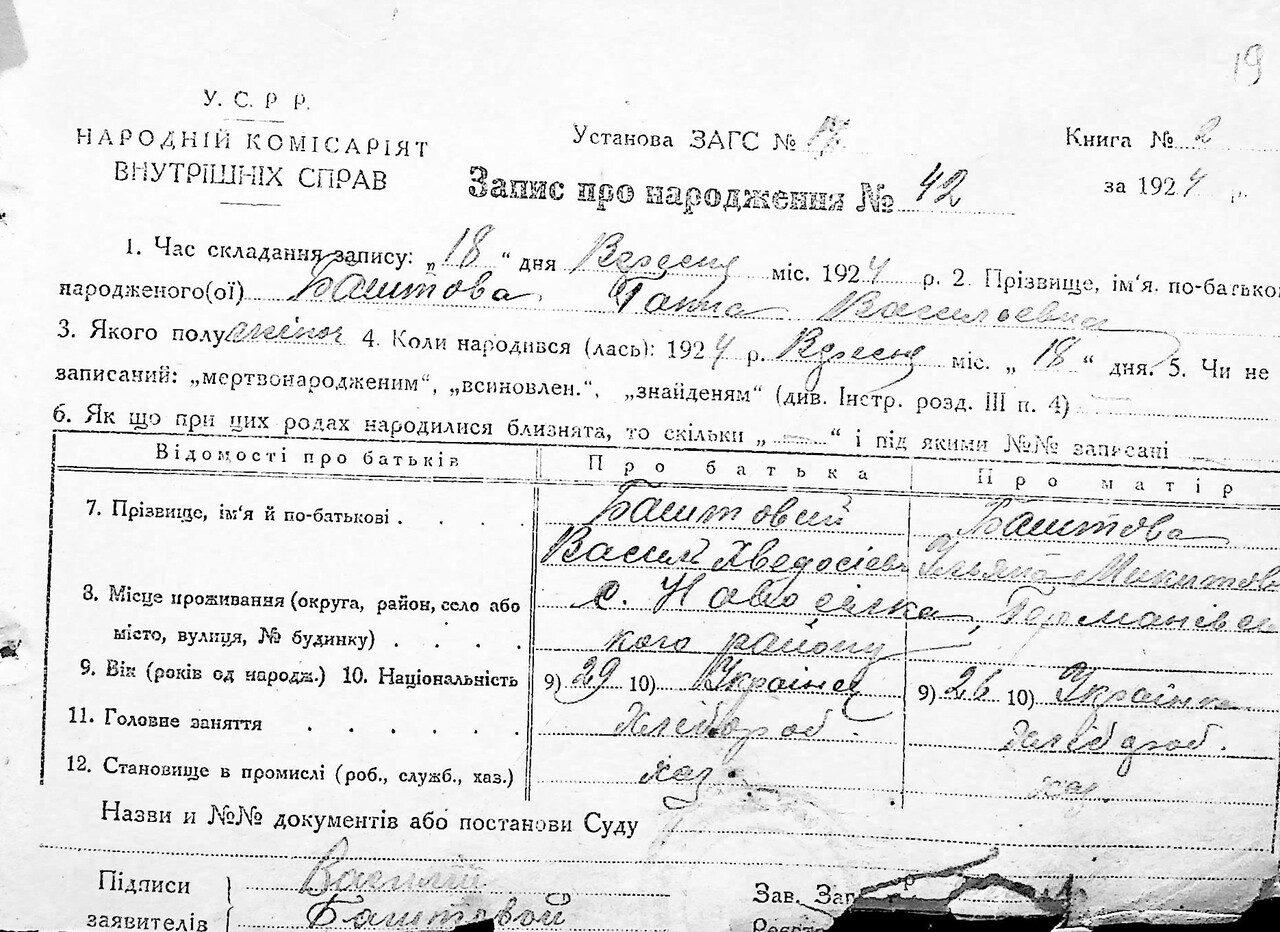 19
У. С. Р Р.
НАРОДНІЙ КОМІСАРІЯТ
ВНУТРІШНІХ СПРАВ
Установа ЗАГС № 17
Книга № 2
Запис про народження № 42
за 1924 р.
1. Час складання запису: „18" дня Вересня міс. 1924 р. 2. Прізвище, ім'я. по-батькові
народженого(ої) Баштова Ганна Василівна
3. Якого полу жіноч 4. Коли народився (лась): 1924 р. Вересня міс. „18" дня. 5. Чи не
записаний: „мертвонародженим", „всиновлен.", „знайденям" (див. Інстр. розд. III п. 4)
6. Як що при цих родах народилися близнята, то скільки „—" і під якими №№ записані
Відомості про батьків Про батька Про матір
7. Прізвище, ім'я й по-батькові Баштовий Баштова
Василь Хведосієв Уляна Микитова
8. Місце проживання (округа, район, село або с. Новосілка, Германівсь
місто, вулиця, № будинку) кого району
9. Вік (років од народж.) 10. Національність 9) 29 10) Українец 9) 26 10) Українка
11. Головне заняття Хлібороб. Хлібороб.
12. Становище в промислі (роб., служб., хаз.) хаз. хаз.
Назви и №№ документів або постанови Суду
Підписи Василій Зав. Заг
заявителів Баштовой Реєстр